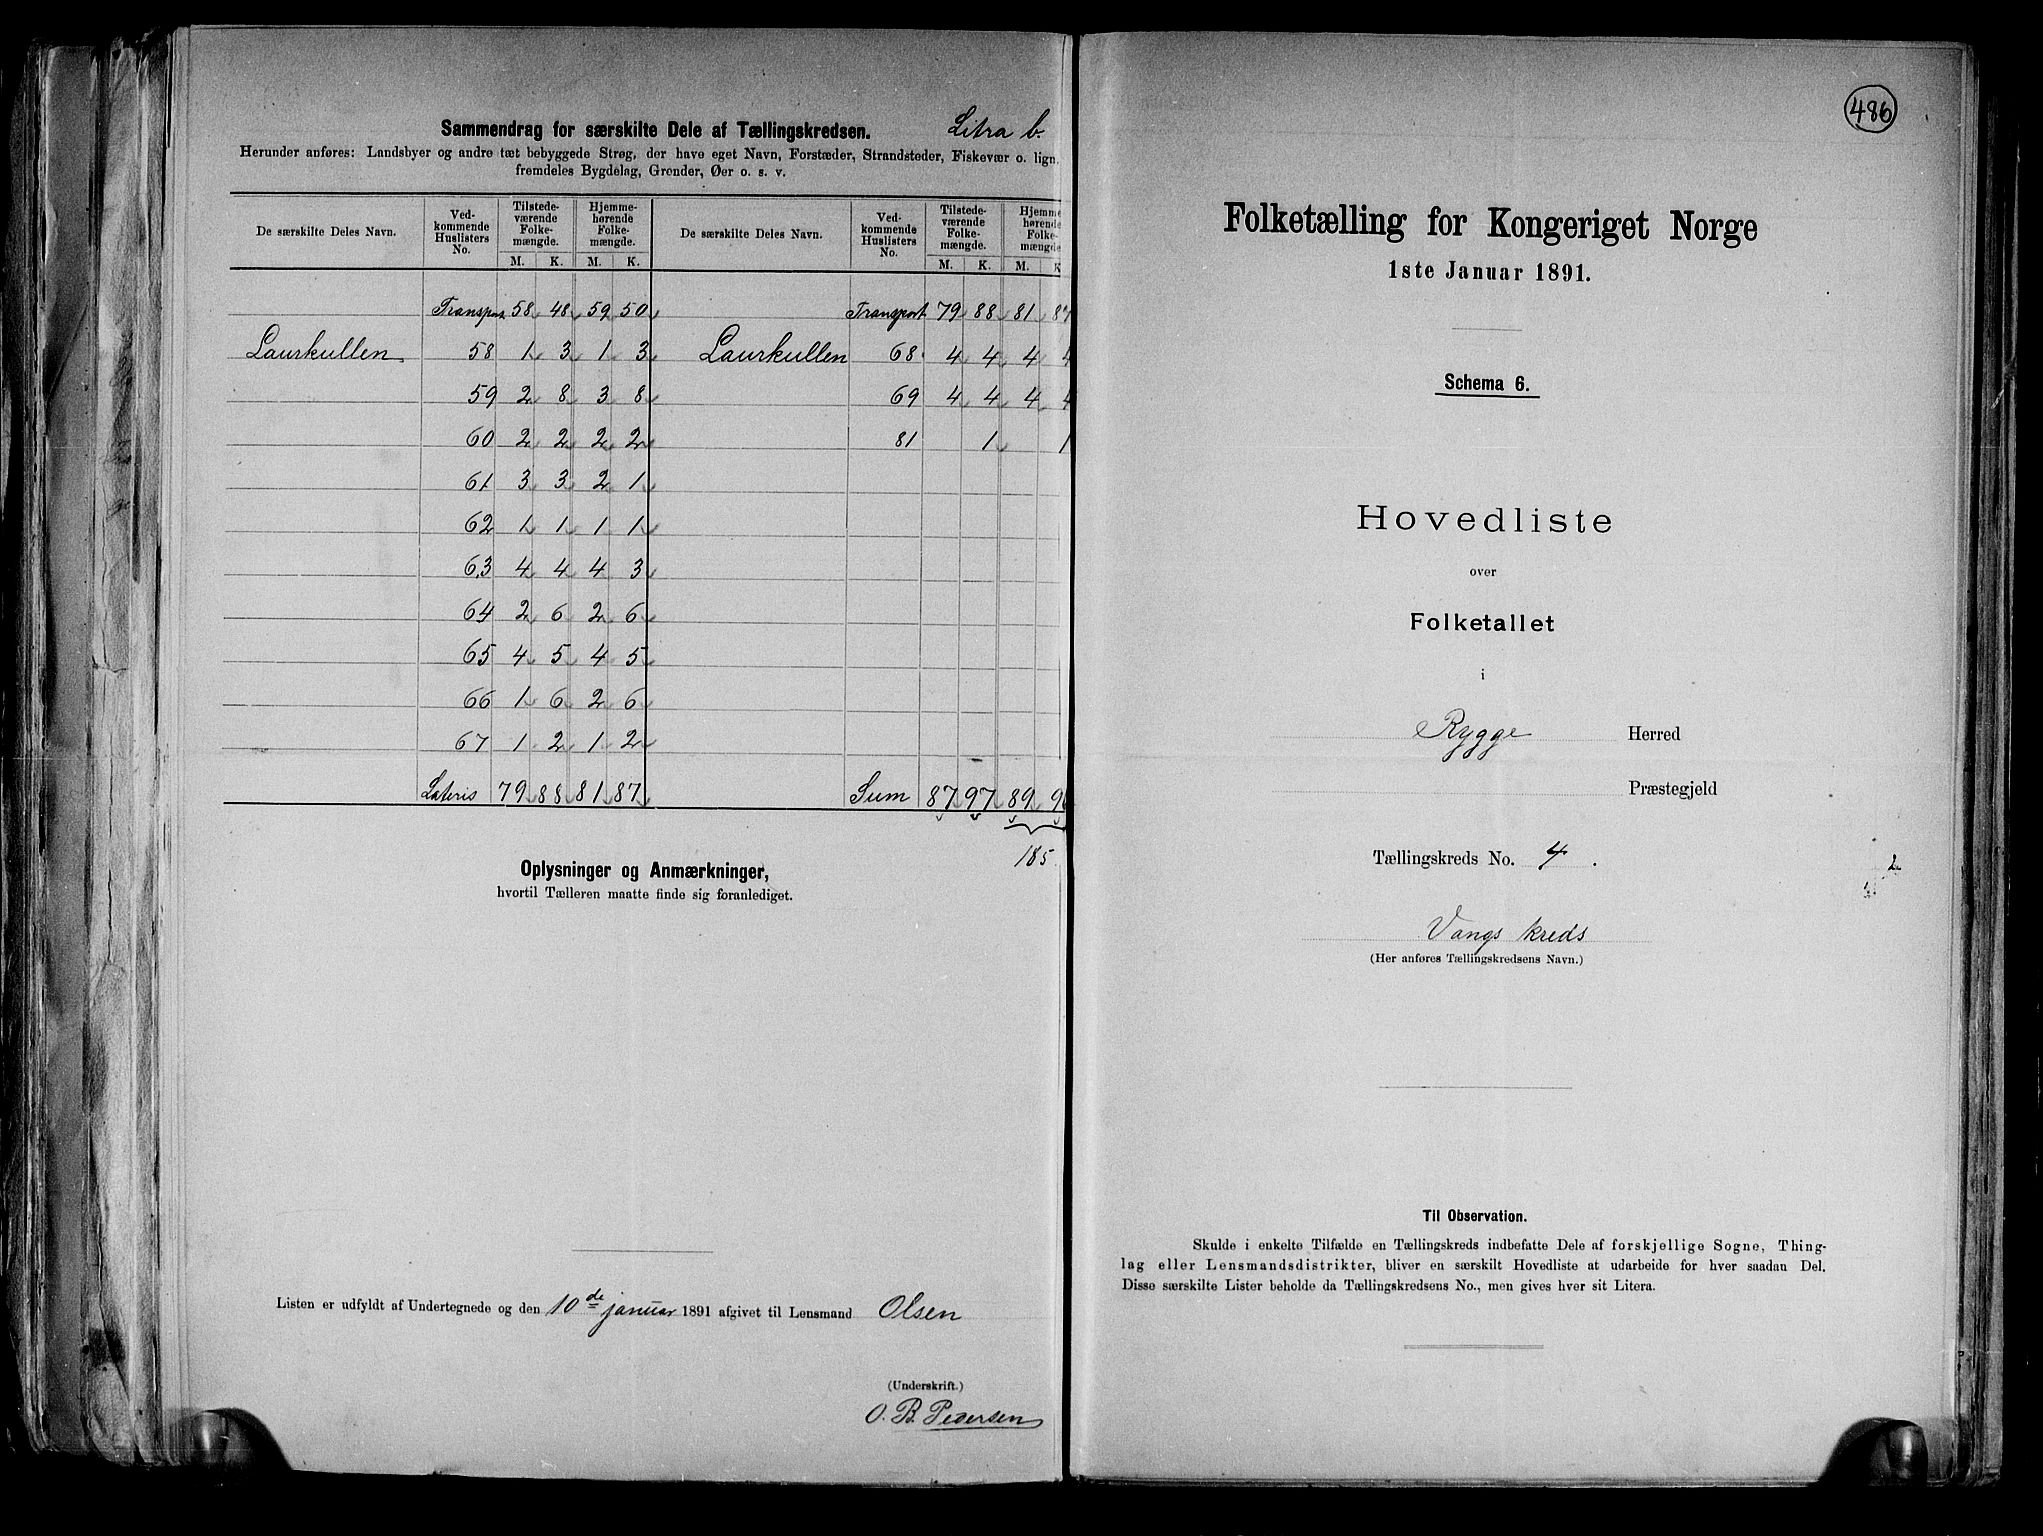 Litra b.
Sammendrag for særskilte Dele af Tællingskredsen.
Herunder anføres: Landsbyer og andre tæt bebyggede Strøg, der have eget Navn, Forstæder, Strandsteder, Fiskevær o. lign.
fremdeles Bygdelag, Grender, Øer o. s. v.
De særskilte Deles Navn. Ved-kommende Huslisters No. Tilstede-værende Folke-mængde. Hjemme-hørende Folke-mængde. De særskilte Deles Navn. Ved-kommende Huslisters No. Tilstede-værende Folke-mængde. Hjemme-hørende Folke-mængde
M. K. M. K. M. K. M. K
Transport 58 48 59 50 Transport 79 88 81 87
Laurkullen 58 1 3 1 3 Laurkullen 68 4 4 4 4
59 2 8 3 8 69 4 4 4 4
60 2 2 2 2 81 1 1
61 3 3 2 1
62 1 1 1 1
63 4 4 4 3
64 2 6 2 6
65 4 5 4 5
66 1 6 2 6
67 1 2 1 2
Lateris 79 88 81 87 Sum 87 97 89 96
185.
Oplysninger og Anmærkninger,
hvortil Tælleren maatte finde sig foranlediget.
Listen er udfyldt af Undertegnede og den 10de januar 1891 afgivet til Lensmand Olsen
(Underskrift.)
O. B. Pedersen
486
Folketælling for Kongeriget Norge
1ste Januar 1891.
Schema 6.
Hovedliste
over
Folketallet
i
Rygge Herred
Præstegjeld
Tællingskreds No. 4.
Vangs kreds
(Her anføres Tællingskredsens Navn.)
Til Observation.
Skulde i enkelte Tilfælde en Tællingskreds indbefatte Dele af forskjellige Sogne, Thing-
lag eller Lensmandsdistrikter, bliver en særskilt Hovedliste at udarbeide for hver saadan Del.
Disse særskilte Lister beholde da Tællingskredsens No., men gives hver sit Litera.